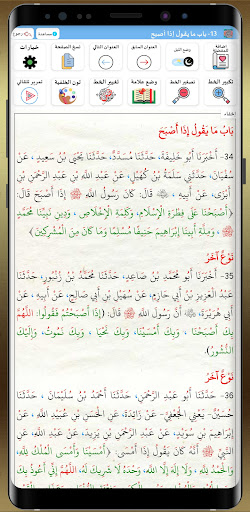 13- باب ما يقول إذا اصبح
مساعدة
رجوع
خيارات
نسخ الصفحة
العنوان التالي
العنوان السابق
وضع الليل
اضافة
للمفضلة
تمرير تلقائي
لون الخلفية
نوع الخط
وضع علامة
تصغير الخط
تكبير الخط
اخفاء
بَابُ مَا يَقُولُ إِذَا أَصْبَحَ
34- أَخْبَرَنَا أَبُو خَلِيفَةَ، حَدَّثَنَا مُسَدَّدٌ، حَدَّثَنَا يَحْيَى بْنُ سَعِيدٍ، عَنْ
سُفْيَانَ، حَدَّثَنِي سَلَمَةُ بْنُ كُهَيْلٍ، عَنْ عَبْدِ اللَّهِ بْنِ عَبْدِ الرَّحْمَنِ بْنِ
أَبْزَى، عَنْ أَبِيهِ، قَالَ: كَانَ رَسُولُ اللَّهِ ﷺ إِذَا أَصْبَحَ قَالَ:
«أَصْبَحْنَا عَلَى فِطْرَةِ الْإِسْلَامِ، وَكَلِمَةِ الْإِخْلَاصِ، وَدِينِ نَبِيِّنَا مُحَمَّدٍ
ﷺ، وَمِلَّةِ أَبِينَا إِبْرَاهِيمَ حَنِيفًا مُسْلِمًا وَمَا كَانَ مِنَ الْمُشْرِكِينَ»
نَوْعٌ آخَرُ
35- أَخْبَرَنَا أَبُو مُحَمَّدِ بْنُ صَاعِدٍ، حَدَّثَنَا مُحَمَّدُ بْنُ زُنْبُورٍ، حَدَّثَنَا
عَبْدُ الْعَزِيزِ بْنُ أَبِي حَازِمٍ، عَنْ سُهَيْلِ بْنِ أَبِي صَالِحٍ، عَنْ أَبِيهِ، عَنْ
أَبِي هُرَيْرَةَ، أَنَّ رَسُولَ اللَّهِ ﷺ قَالَ: " إِذَا أَصْبَحْتُمْ فَقُولُوا: اللَّهُمَّ
بِكَ أَصْبَحْنَا، وَبِكَ أَمْسَيْنَا، وَبِكَ نَحْيَا، وَبِكَ نَمُوتُ، وَإِلَيْكَ
النُّشُورُ).
نَوْعٌ آخَرُ
36- حَدَّثَنَا أَبُو عَبْدِ الرَّحْمَنِ، حَدَّثَنَا أَحْمَدُ بْنُ سُلَيْمَانَ، حَدَّثَنَا
حُسَيْنٌ- يَعْنِي الْجُعْفِيَّ- عَنْ زَائِدَةَ، عَنِ الْحَسَنِ بْنِ عُبَيْدِ اللَّهِ، عَنْ
إِبْرَاهِيمَ بْنِ سُوَيْدٍ، عَنْ عَبْدِ الرَّحْمَنِ بْنِ يَزِيدَ، عَنْ عَبْدِ اللَّهِ، عَنِ
النَّبِيِّ ﷺ أَنَّهُ كَانَ يَقُولُ إِذَا أَمْسَى: (أَمْسَيْنَا وَأَمْسَى الْمُلْكُ لِلَّهِ،
وَالْحَمْدُ لِلَّهِ، وَلَا إِلَهَ إِلَّا اللَّهُ، وَحْدَهُ لَا شَرِيكَ لَهُ، اللَّهُمَّ إِنِّي أَعُوذُ بِكَ